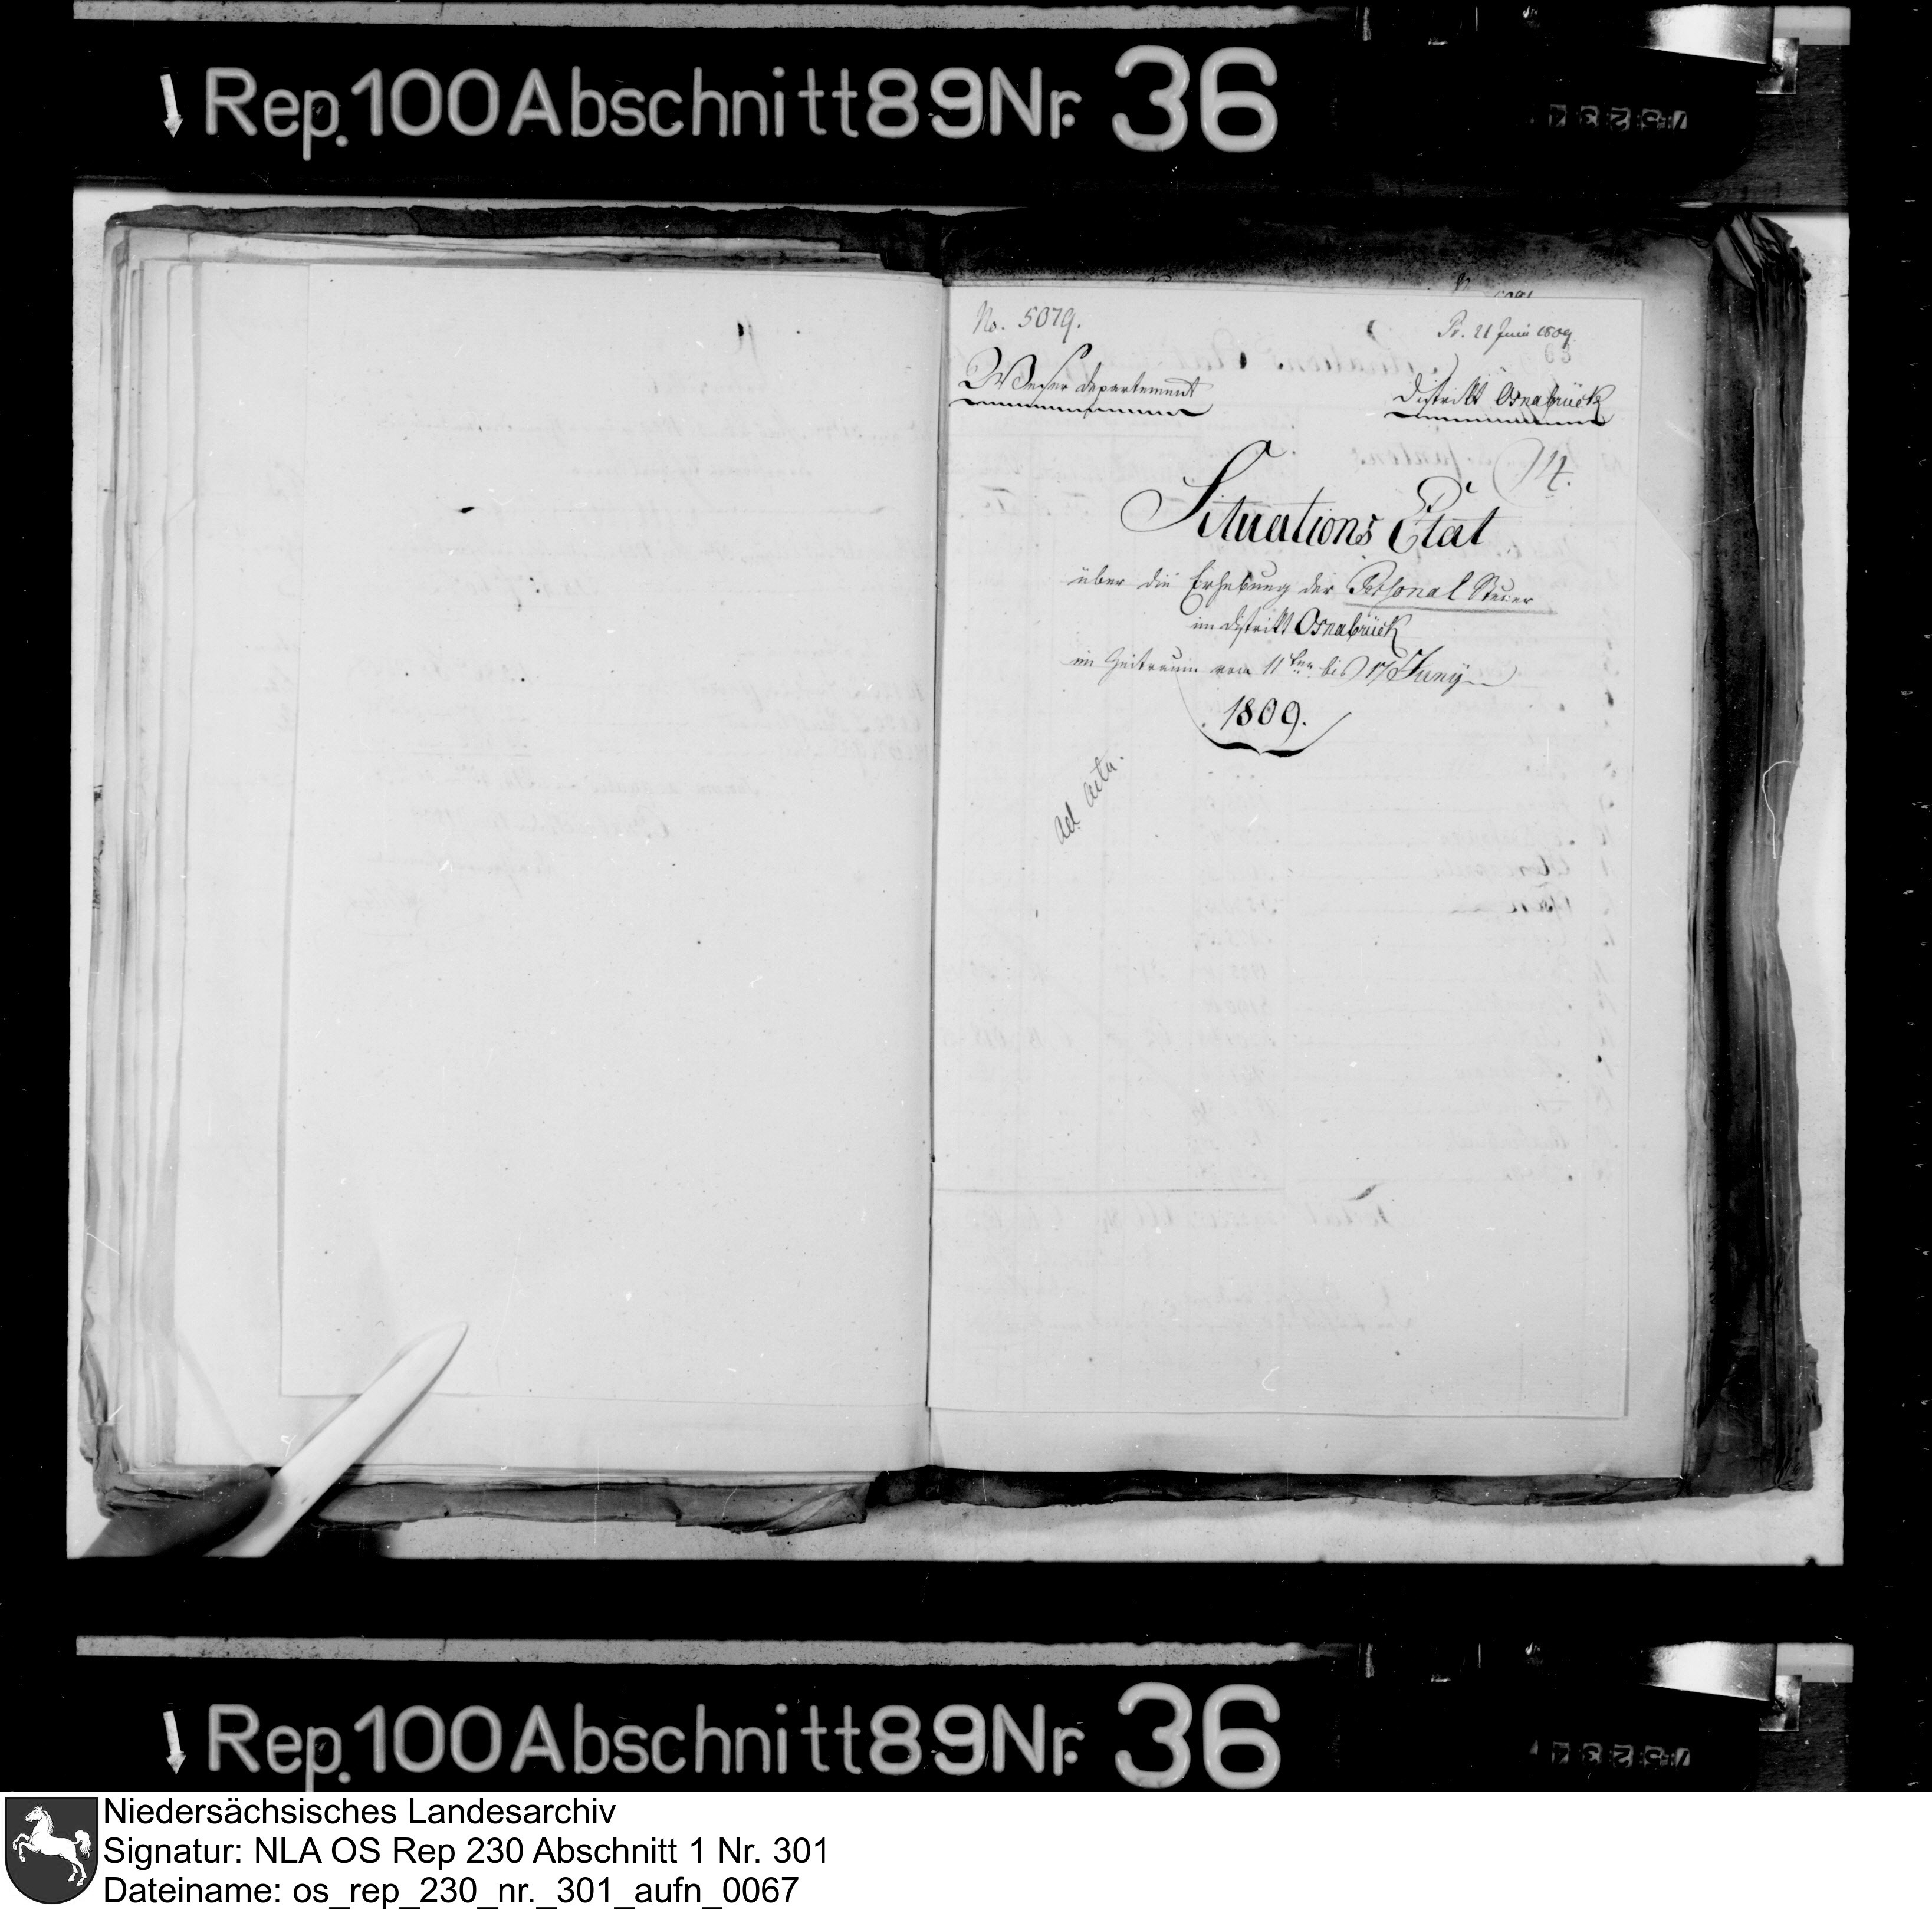 Rep. 100 Abschnitt 89 Nr. 36
No. 5079.
Pr. 21 Juni 1809.
Weser departement
District Osnabrück
14.
Situations Etat
über die Erhebung der Personal Steuer
im District Osnabrück
im Zeitraum vom 11ten bis 17 Juny
1809.
ad acta.
Rep. 100 Abschnitt 89 Nr. 36
Niedersächsisches Landesarchiv
Signatur: NLA OS Rep 230 Abschnitt 1 Nr. 301
Dateiname: os_rep_230_nr._301_aufn_0067